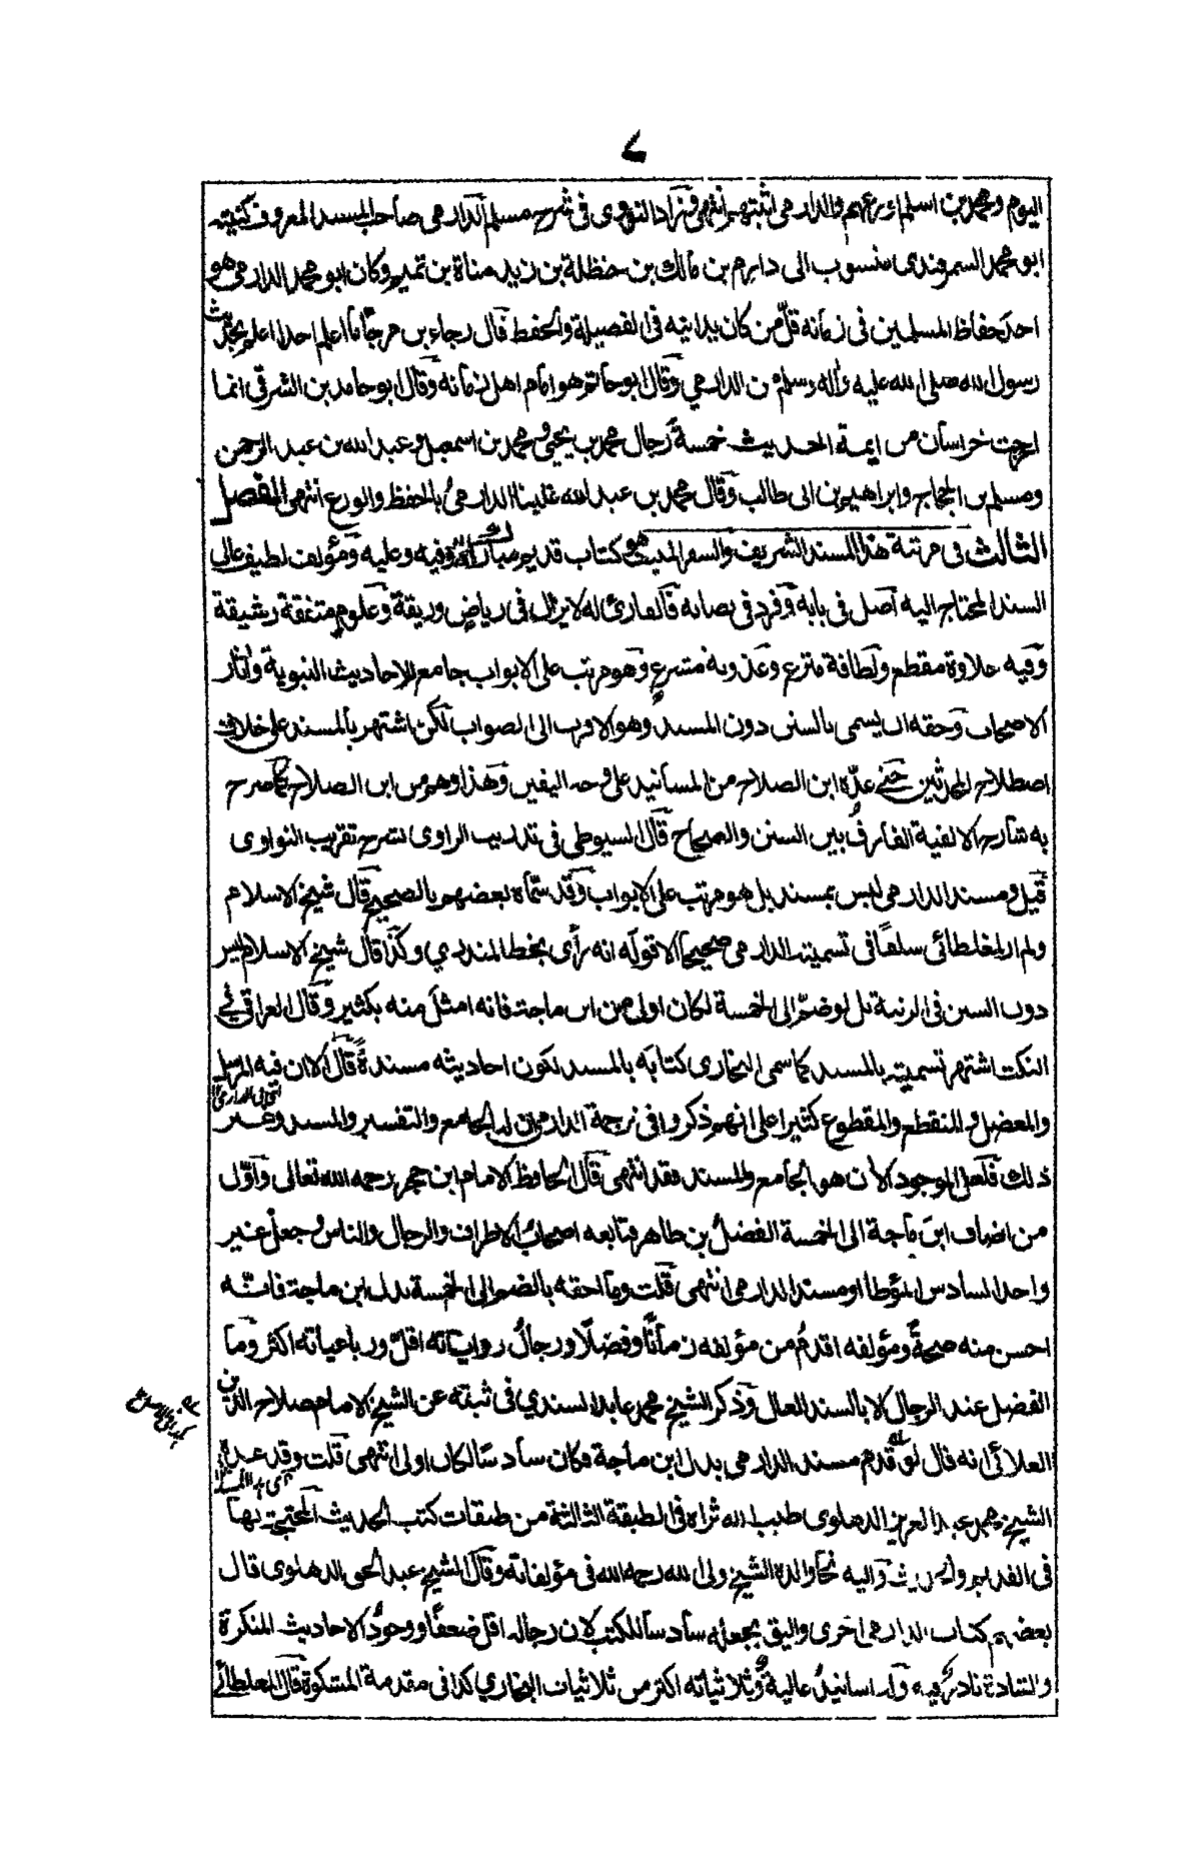 ٧
اليوم ومحمد بن اسلم اورعهم والدارمى اثبتهم انتهى وزاد النووى فى شرح مسلم الدارمى صاحب المسند المعروف كنيته
ابو محمد السمرقندى منسوب الى دارم بن مالك بن حنظلة بن زيد مناة بن تميم وكان ابو محمد الدارمى هو
احد حفاظ المسلمين فى زمانه قلّ من كان يدانيه فى الفضيلة والحفظ قال رجاء بن مرجّا ما اعلم احدا اعلم بحديث
رسول الله صلى الله عليه واله وسلم من الدارمي وقال ابو حاتم هو امام اهل زمانه وقال ابو حامد بن الشرقى انما
اخرجت خراسان من ايمة الحديث خمسة رجال محمد بن يحيى ومحمد بن اسمعيل وعبد الله بن عبد الرحمن
ومسلم بن الحجاج وابراهيم بن ابى طالب وقال محمد بن عبد الله غلبنا الدارمى بالحفظ والورع انتهى المقصل
الثالث فى مرتبة هذا المسند الشريف والسفر المنيف هو كتاب قديم مبارك وفيه وعليه ومؤلف لطيف عالى
السند المحتاج اليه اصل فى بابه وفرد فى نصابه فالقارئ له لا يزال فى رياض وريقة وعلوم متفقة رشيقة
وفيه حلاوة مقطع ولطافة منزع وعذوبة مشرع وهو مرتب على الابواب جامع للاحاديث النبوية واثار
الاصحاب وحقه ان يسمى بالسنن دون المسند وهو الاقرب الى الصواب لكن اشتهر بالمسند على خلاف
اصطلاح المحدثين حتى عدّه ابن الصلاح من المسانيد على وجه اليقين وهذا وهم من ابن الصلاح كما صرح
به شارح الالفية الفارق بين السنن والصحاح قال السيوطى فى تدريب الراوى شرح تقريب النواوى
قيل ومسند الدارمى ليس بمسند بل هو مرتب على الابواب وقد سمّاه بعضهم بالصحيح قال شيخ الاسلام
ولم ار لمغلطائى سلفا فى تسمية الدارمى صحيحا الا قوله انه رأى بخط المنذري وكذا قال شيخ الاسلام ليس
دون السنن فى الرتبة بل لو ضم الى الخمسة لكان اولى من ابن ماجة فانه امثل منه بكثير وقال العراقى فى
النكت اشتهر تسميته بالمسند كما سمى البخارى كتابه بالمسند لكون احاديثه مسندة قال الا ان فيه المرسل
والمعضل والمنقطع والمقطوع كثيرا على انهم ذكروا فى ترجمة الدارمى ان له الجامع والتفسير والمسند وغير
ذلك فلعل الموجود الأن هو الجامع والمسند فقد انتهى قال الحافظ الامام ابن حجر رحمه الله تعالى واوّل
من اضاف ابن ماجة الى الخمسة الفضل بن طاهر فتابعه اصحاب الاطراف والرجال والناس وجعل غير
واحد السادس المؤطا او مسند الدارمى انتهى قلت وما احقه بالضم الى الخمسة بدل ابن ماجة فانّه
احسن منه صحةً ومؤلفه اقدم من مؤلفه زمانًا وفضلًا ورجال رواياته اقلّ ورباعياته اكثر وما
الفضل عند الرجال الا بالسند العال وذكر الشيخ محمد عابد السندي فى ثبته عن الشيخ الامام صلاح الدين
العلائى انه قال لو قدم مسند الدارمى بدل ابن ماجة فكان سادسًا لكان اولى انتهى قلت وقد عده
الشيخ محمد عبد العزيز الدهلوى طيب الله ثراه فى الطبقة الثالثة من طبقات كتب الحديث المحتج بها
فى القديم والحديث واليه نحا والده الشيخ ولى الله رحمه الله فى مؤلفاته وقال الشيخ عبد الحق الدهلوى قال
بعضهم كتاب الدارمى احرى واليق بجعله سادسا للكتب لان رجاله اقل ضعفا ووجود الاحاديث المنكرة
والشاذة نادر فيه وله اسانيد عالية وثلاثياته اكثر من ثلاثيات البخاري كذا فى مقدمة المشكوة قال المغلطائى